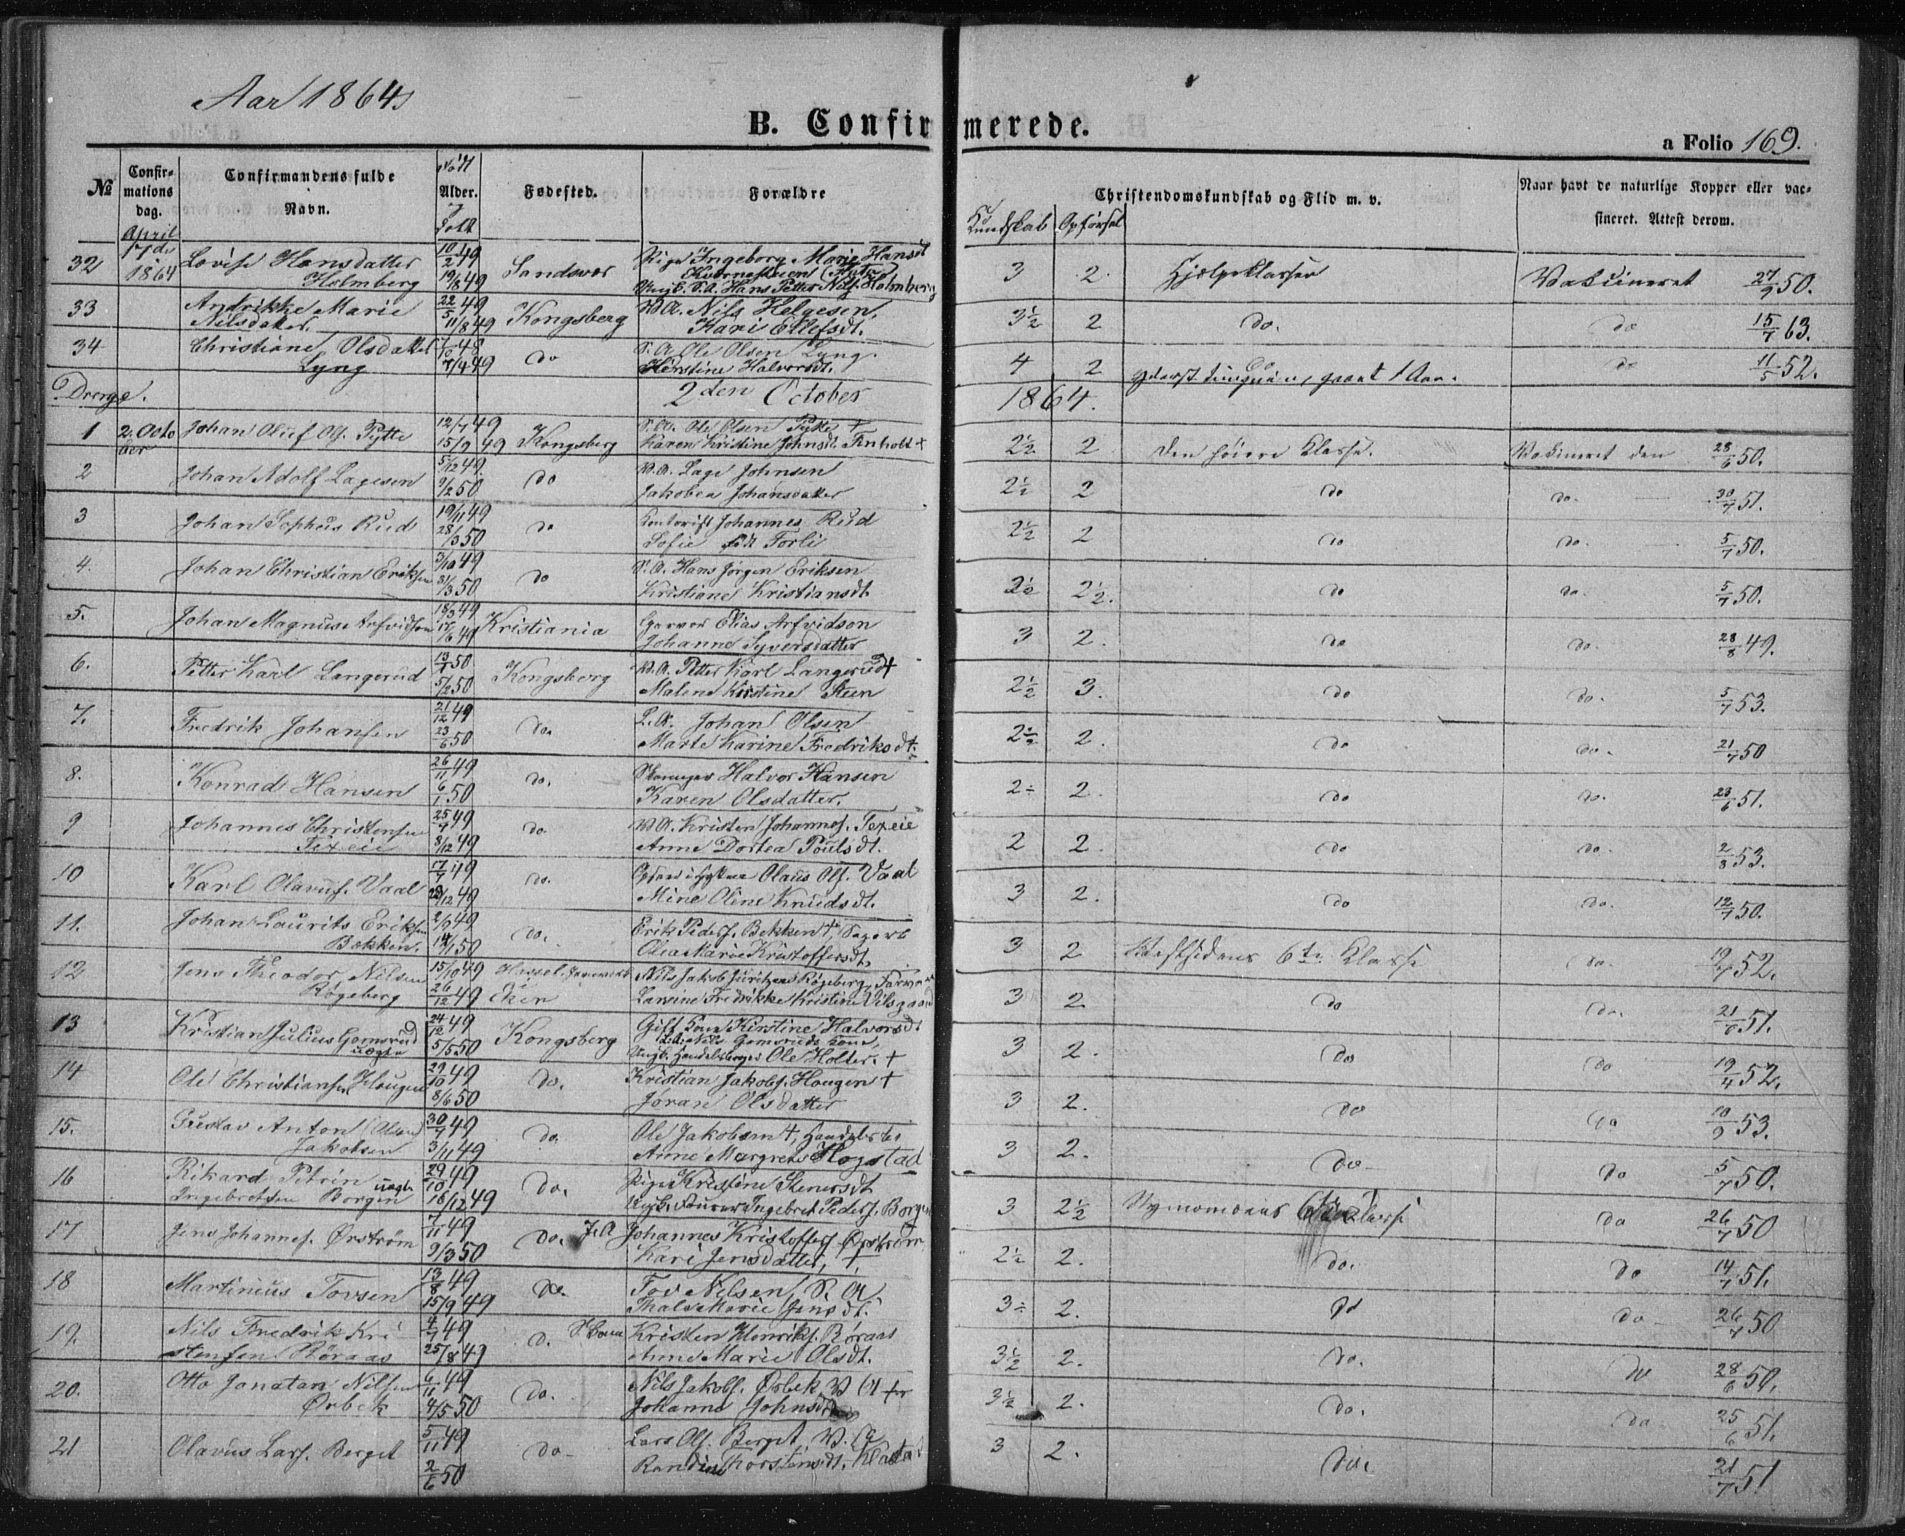 Aar 1864
B. Confirmerede.
a Folio 169.
No
Confirmations dag.
Confirmandens fulde Navn.
Født Alder. Døbt
Fødested.
Forældre
Kundskab
Opførsel
Christendomskundskab og Flid m. v.
Naar havt de naturlige Kopper eller vaccineret. Attest derom.
32 April 17de 1864 Lovise Hansdatter Holmberg 10/2 49 19/8 49 Sandsvær Pige Ingeborg Marie Hansdt Hans Petter Nils. Holmberg 3 2 Hjelpeklassen Vakcineret 27/9 50.
33 Andrikke Marie Nilsdatter 22/5 49 11/8 49 Kongsberg B.A. Nils Helgesen, Kari Ellefsdt. 3½ 2 do. do 15/7 63.
34 Christiane Olsdatter Lyng 48 7/4 49 do S.A. Ole Olsen Lyng. Kirstine Halvorsdt. 4 2 do 1 Aar. do 11/5 52.
Drenge. 2den October 1864.
1 2. October Johan Oluf Ols. Pytte 12/7 49 15/9 49 Kongsberg Ole Olsen Pytte + Karen Kristine Johnsdt. Finholt + 2½ 2 Den høiere Klasse. Vakcineret den 28/6 50.
2 Johan Adolf Lagesen 5/12 49 9/2 50 do B.A. Lage Johnsen Jakobea Johansdatter 2½ 2 do do. 30/7 51.
3 Johan Sophus Rud 19/11 49 28/3 50 do Johannes Rud Sofie født Torli 2½ 2 do do. 5/7 50.
4. Johan Christian Eriksen 3/10 49 31/3 50 do S.A. Hans Jørgen Eriksen Kristiane Kristiansdt. 2½ 2½. do do. 5/7 50.
5. Johan Magnus Arfvidsen 18/3 49 17/6 49 Kristiania Garver Elias Arfvidson Johanne Syversdatter 3 2. do do. 28/8 49.
6. Petter Karl Langerud 13/1 50 5/2 50 Kongsberg B.A. Petter Karl Langerud + Malene Kirstine Steen 2½ 3. do do. 5/7 53.
7. Fredrik Johansen 21/12 49 23/6 50 do. Johan Olsen Marte Karine Fredriksdt. 2½ 2. do do. 21/7 50
8. Konrad Hansen 26/11 49 6/1 50 do. Halvor Hansen Karen Olsdatter. 2÷ 2. do do. 23/6 51.
9 Johannes Christensen Texeie 25/9 49 3/12 49 do B.A. Kristen Johannes. Texeie Anne Dortea Poulsdt. 2 2. do do. 2/8 53.
10 Karl Olaus. Vaal 17/7 49 23/12 49 do. Olaus Ols. Vaal Mine Oline Knudsdt. 3 2. do do. 12/7 50.
11. Johan Laurits Eriksen Bakken. 2/9 49 14/1 50 do. Erik Peders. Bekken +, Sagarb Olea Marie Kristoffersdt. 3 2 Vestsidens 6te Klasse do. 19/7 52.
12 Jens Theodor Nilsen Røgeberg 15/10 49 26/12 49 Hassel Jernverk Eker Nils Jakob Røgeberg, Larsine Fredrikke Kristine Nilsgaard 3 2 do do. 21/6 51.
13 Kristian Julius Gomsrud uægte 24/12 49 5/5 50 Kongsberg Gift Kone Kirstine Halvorsdt Gomsruds Kone, Ungk. Handelsborger Ole Holter. + 3 2. do do 19/4 52.
14 Ole Christiansen Hougen 29/10 49 8/6 50 do. Kristian Jakobs. Hougen + Jøran Olsdatter 3 2. do do 10/9 53.
15. Gustav Anton (Olsen) Jakobsen 30/7 49 3/11 49 do. Ole Jakobsen +, Handelsb. Anne Margrete Hogstad 3 2. do do 5/7 50.
16 Rikard Petrin uægte Ingebretsen Borgen 29/10 49 16/12 49 do. Pige Kristine Stenersdt Ingebret Peders. Borgen 3 2½ Nymoens 6te Klasse do 26/7 50
17 Jens Johannes. Ørstrøm 7/11 49 9/3 50 do. Johannes Kristoffers Ørstrøm Kari Jensdatter, + 2½ 2. do. do 14/7 51.
18 Martinius Tovsen 13/8 49 15/9 49 do. Tov Nilsen, S. A Thale Marie Jensdt. 3÷ 2. do do 26/7 50
19. Nils Fredrik Kristensen Røraas 4/7 49 25/8 49 d. Kristen Henriks. Røraas Anne Marie Olsdt. 3½ 2. do. do 28/6 50.
20. Otto Jonatan Nilsen Ørbek 6/11 49 4/5 50 do. Nils Jakobs. Ørbek Johanne Johnsdt 3½ 2. do. do 25/6 51.
21 Olavus Lars. Berget 5/11 49 2/6 50 do Lars Ols. Berget Randine Thorstensdt. Klastad 3 2. do. 21/7 51